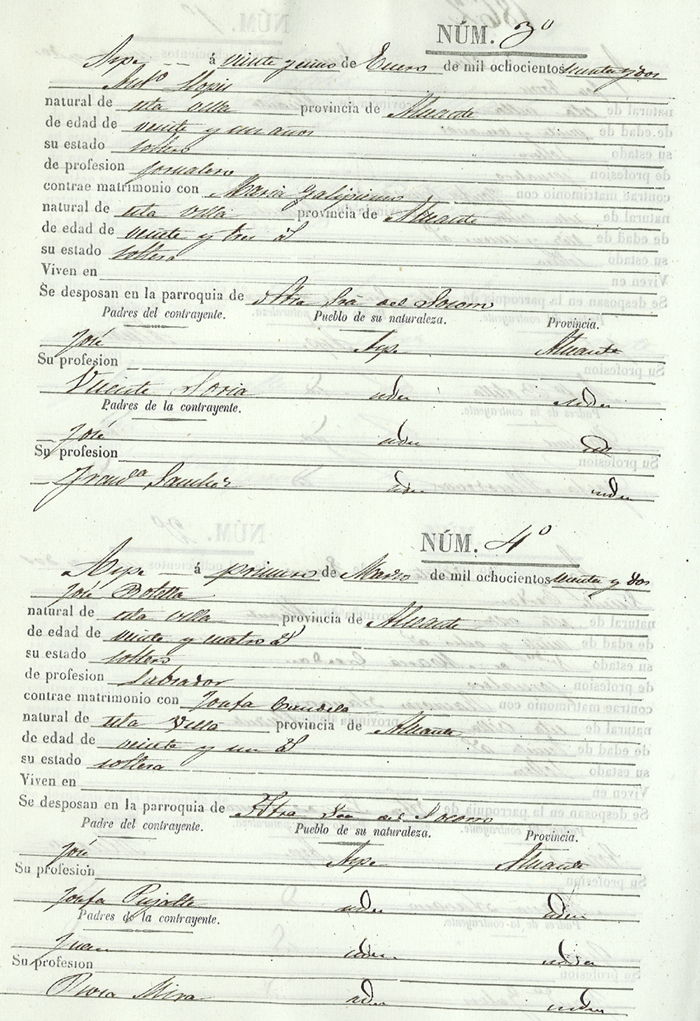 NÚM. 3º
Aspe á veinte y uno de Enero de mil ochocientos
Ant.º
natural de esta villa provincia de Alicante
de edad de veinte y un años
su estado soltero
de profesion jornalero
contrae matrimonio con Maria Galipienso
natural de esta villa provincia de Alicante
de edad de veinte y tres a.s
su estado soltera
Viven en
Se desposan en la parroquia de Ntra Sra del Socorro
Padres del contrayente. Pueblo de su naturaleza. Provincia.
José Aspe Alicante
Su profesion
Vicente Soria idem idem
Padres de la contrayente.
José idem id
Su profesion
Fran.ca Sanchez idem idem
NÚM. 4º
Aspe á primero de Marzo de mil ochocientos
José Botella
natural de esta villa provincia de Alicante
de edad de veinte y cuatro a.s
su estado soltero
de profesion Labrador
contrae matrimonio con Josefa Candela
natural de esta villa provincia de Alicante
de edad de veinte y un a.s
su estado soltera
Viven en
Se desposan en la parroquia de Ntra Sra del Socorro
Padre del contrayente. Pueblo de su naturaleza. Provincia.
José Aspe Alicante
Su profesion
Josefa Pujalte idem idem
Padres de la contrayente.
Juan idem idem
Su profesion
Rosa Mira idem idem